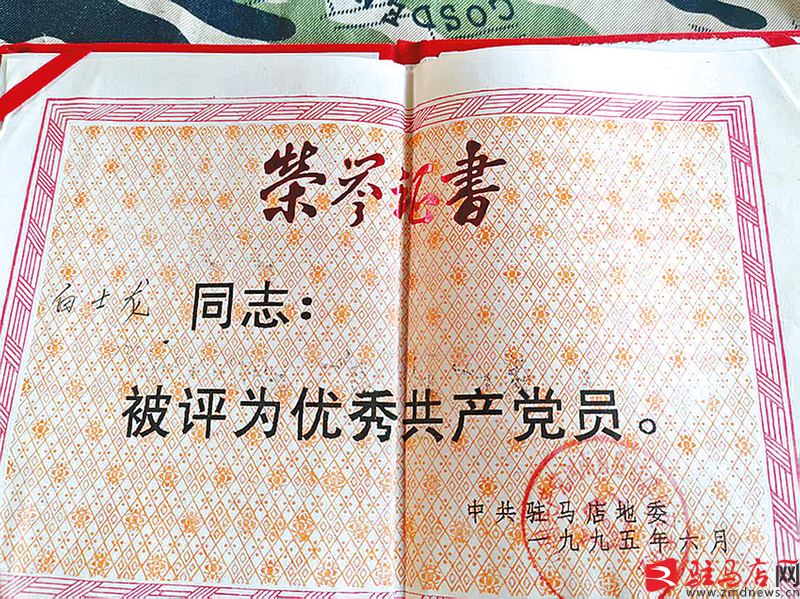 GOSD
荣誉证书
白士龙 同志：
被评为优秀共产党员。
中共驻马店地委
一九九五年六月
驻马店网
www.zmdnews.cn